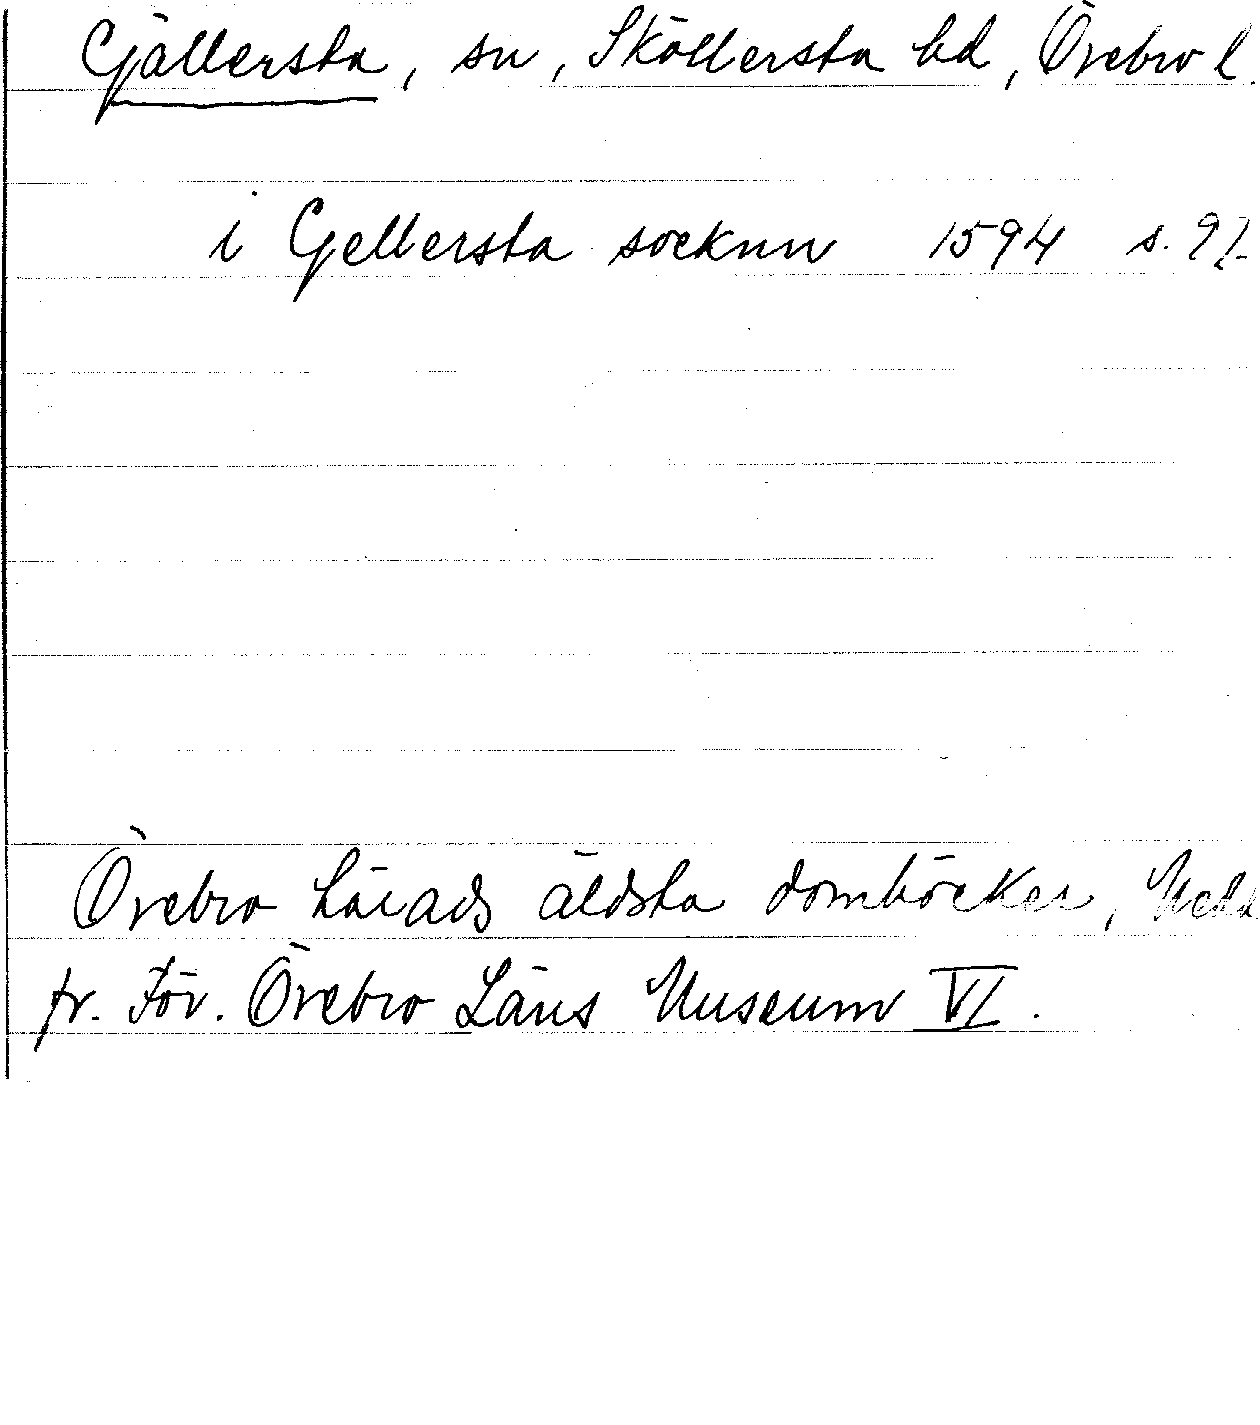 Gällersta, sn, Sköllersta hd, Örebro l.
i Gellersta socknn 1594 s. 92
Örebro härads äldsta domböcker, Medd
fr. För. Örebro Läns Museum VI.